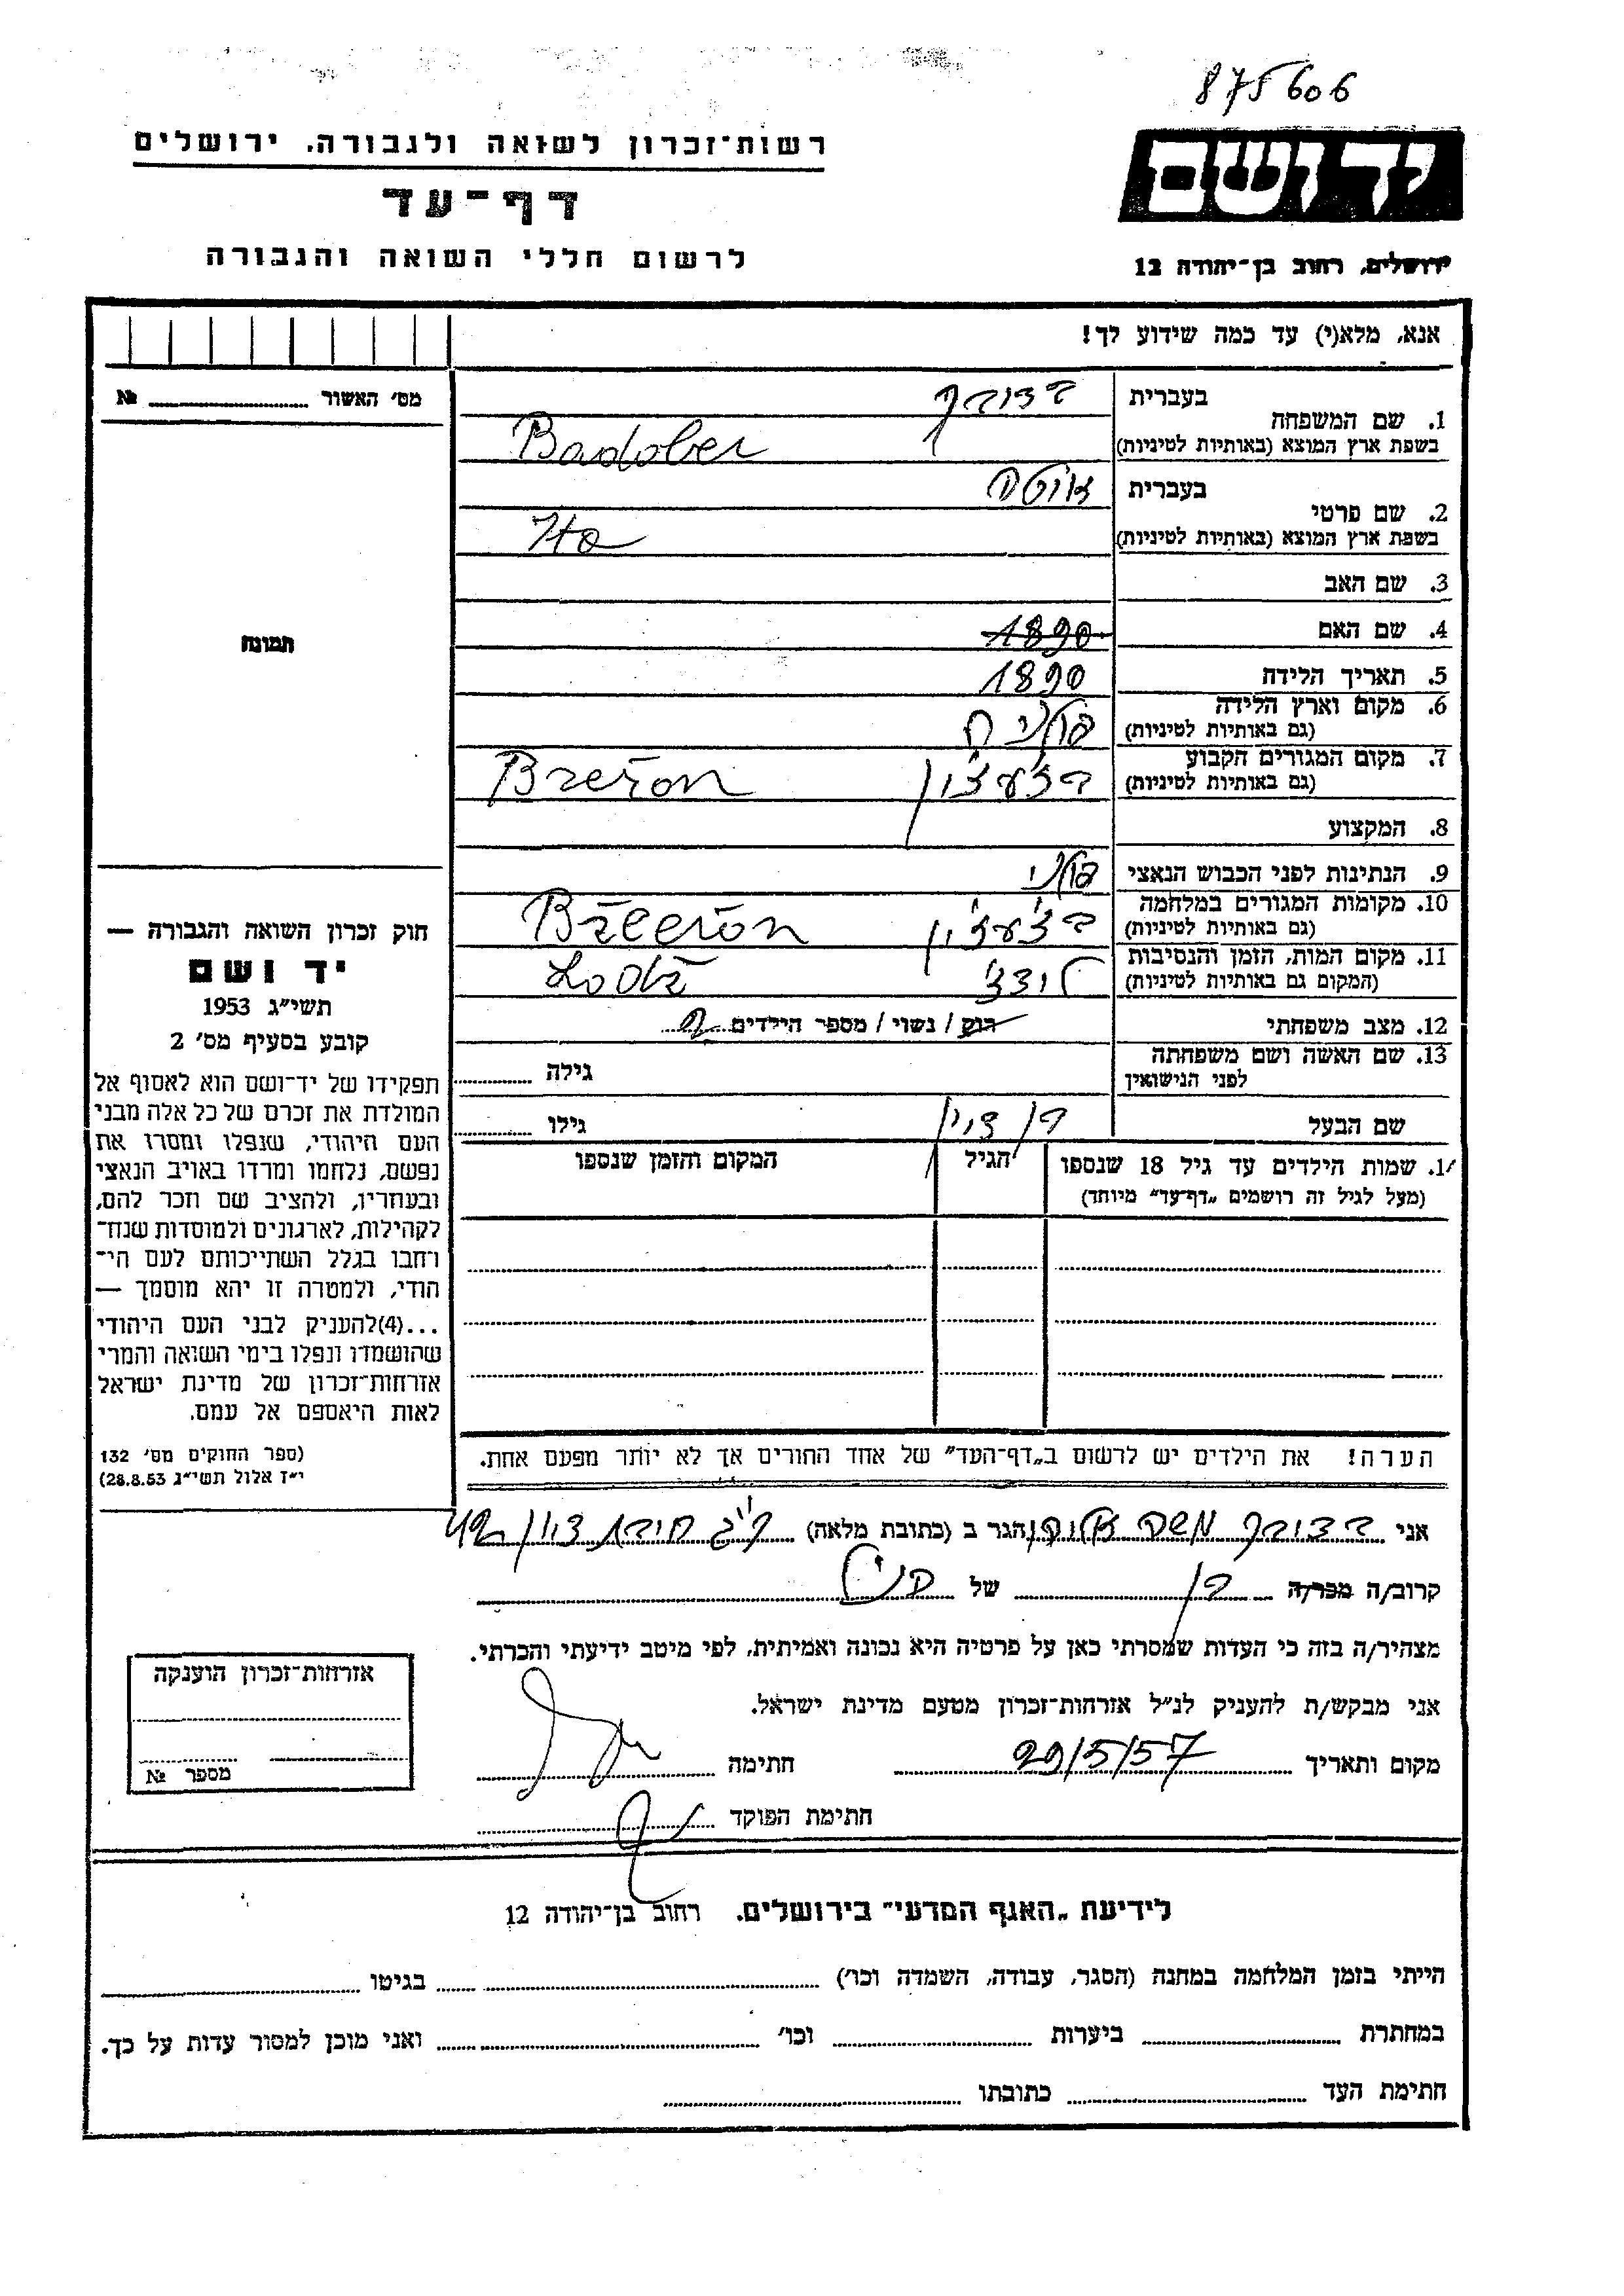 875606
רשות־זכרון לשואה ולגבורה. ירושלים
יד ושם
דף־עד
לרשום חללי השואה והגבורה
ירושלים, רחוב בן־יהודה 12
אנא, מלא(י) עד כמה שידוע לך!
מס׳ האשור № 
תמונה
בעברית
1. שם המשפחה
בשפת ארץ המוצא (באותיות לטיניות) Badober
בעברית
2. שם פרטי
בשפת ארץ המוצא (באותיות לטיניות) Ita
3. שם האב
4. שם האם 1890
5. תאריך הלידה 1890
6. מקום וארץ הלידה
(גם באותיות לטיניות)
7. מקום המגורים הקבוע
(גם באותיות לטיניות)
8. המקצוע
9. הנתינות לפני הכבוש הנאצי פולני
10. מקומות המגורים במלחמה
(גם באותיות לטיניות)
11. מקום המות, הזמן והנסיבות לודז׳ Lodź
(המקום גם באותיות לטיניות)
12. מצב משפחתי רוק / נשוי / מספר הילדים
13. שם האשה ושם משפחתה
לפני הנישואין גילה
שם הבעל בן ציון גילו
שמות הילדים עד גיל 18 שנספו הגיל המקום והזמן שנספו
(מעל לגיל זה רושמים „דף־עד״ מיוחד)
חוק זכרון השואה והגבורה —
יד ושם
תשי״ג 1953
קובע בסעיף מס׳ 2
תפקידו של יד־ושם הוא לאסוף אל
המולדת את זכרם של כל אלה מבני
העם היהודי, שנפלו ומסרו את
נפשם, נלחמו ומרדו באויב הנאצי
ובעוזריו, ולהציב שם וזכר להם,
לקהילות, לארגונים ולמוסדות שנח־
רבו בגלל השתייכותם לעם הי־
הודי, ולמטרה זו יהא מוסמך —
...(4)להעניק לבני העם היהודי
שהושמדו ונפלו בימי השואה והמרי
אזרחות־זכרון של מדינת ישראל
לאות היאספם אל עמם.
(ספר החוקים מס׳ 132
י״ז אלול תשי״ג 28.8.53)
הערה! את הילדים יש לרשום ב„דף־העד״ של אחד ההורים אך לא יותר מפעם אחת.
אני הגר ב (כתובת מלאה)
קרוב/ה מכר/ה בן של
מצהיר/ה בזה כי העדות שמסרתי כאן על פרטיה היא נכונה ואמיתית, לפי מיטב ידיעתי והכרתי.
אני מבקש/ת להעניק לנ״ל אזרחות־זכרון מטעם מדינת ישראל.
מקום ותאריך 29/5/57 חתימה
חתימת הפוקד
אזרחות־זכרון הוענקה
מספר №
לידיעת „האגף המדעי״ בירושלים. רחוב בן־יהודה 12
הייתי בזמן המלחמה במחנה (הסגר, עבודה, השמדה וכו׳) בגיטו
במחתרת ביערות וכו׳ ואני מוכן למסור עדות על כך.
חתימת העד כתובתו